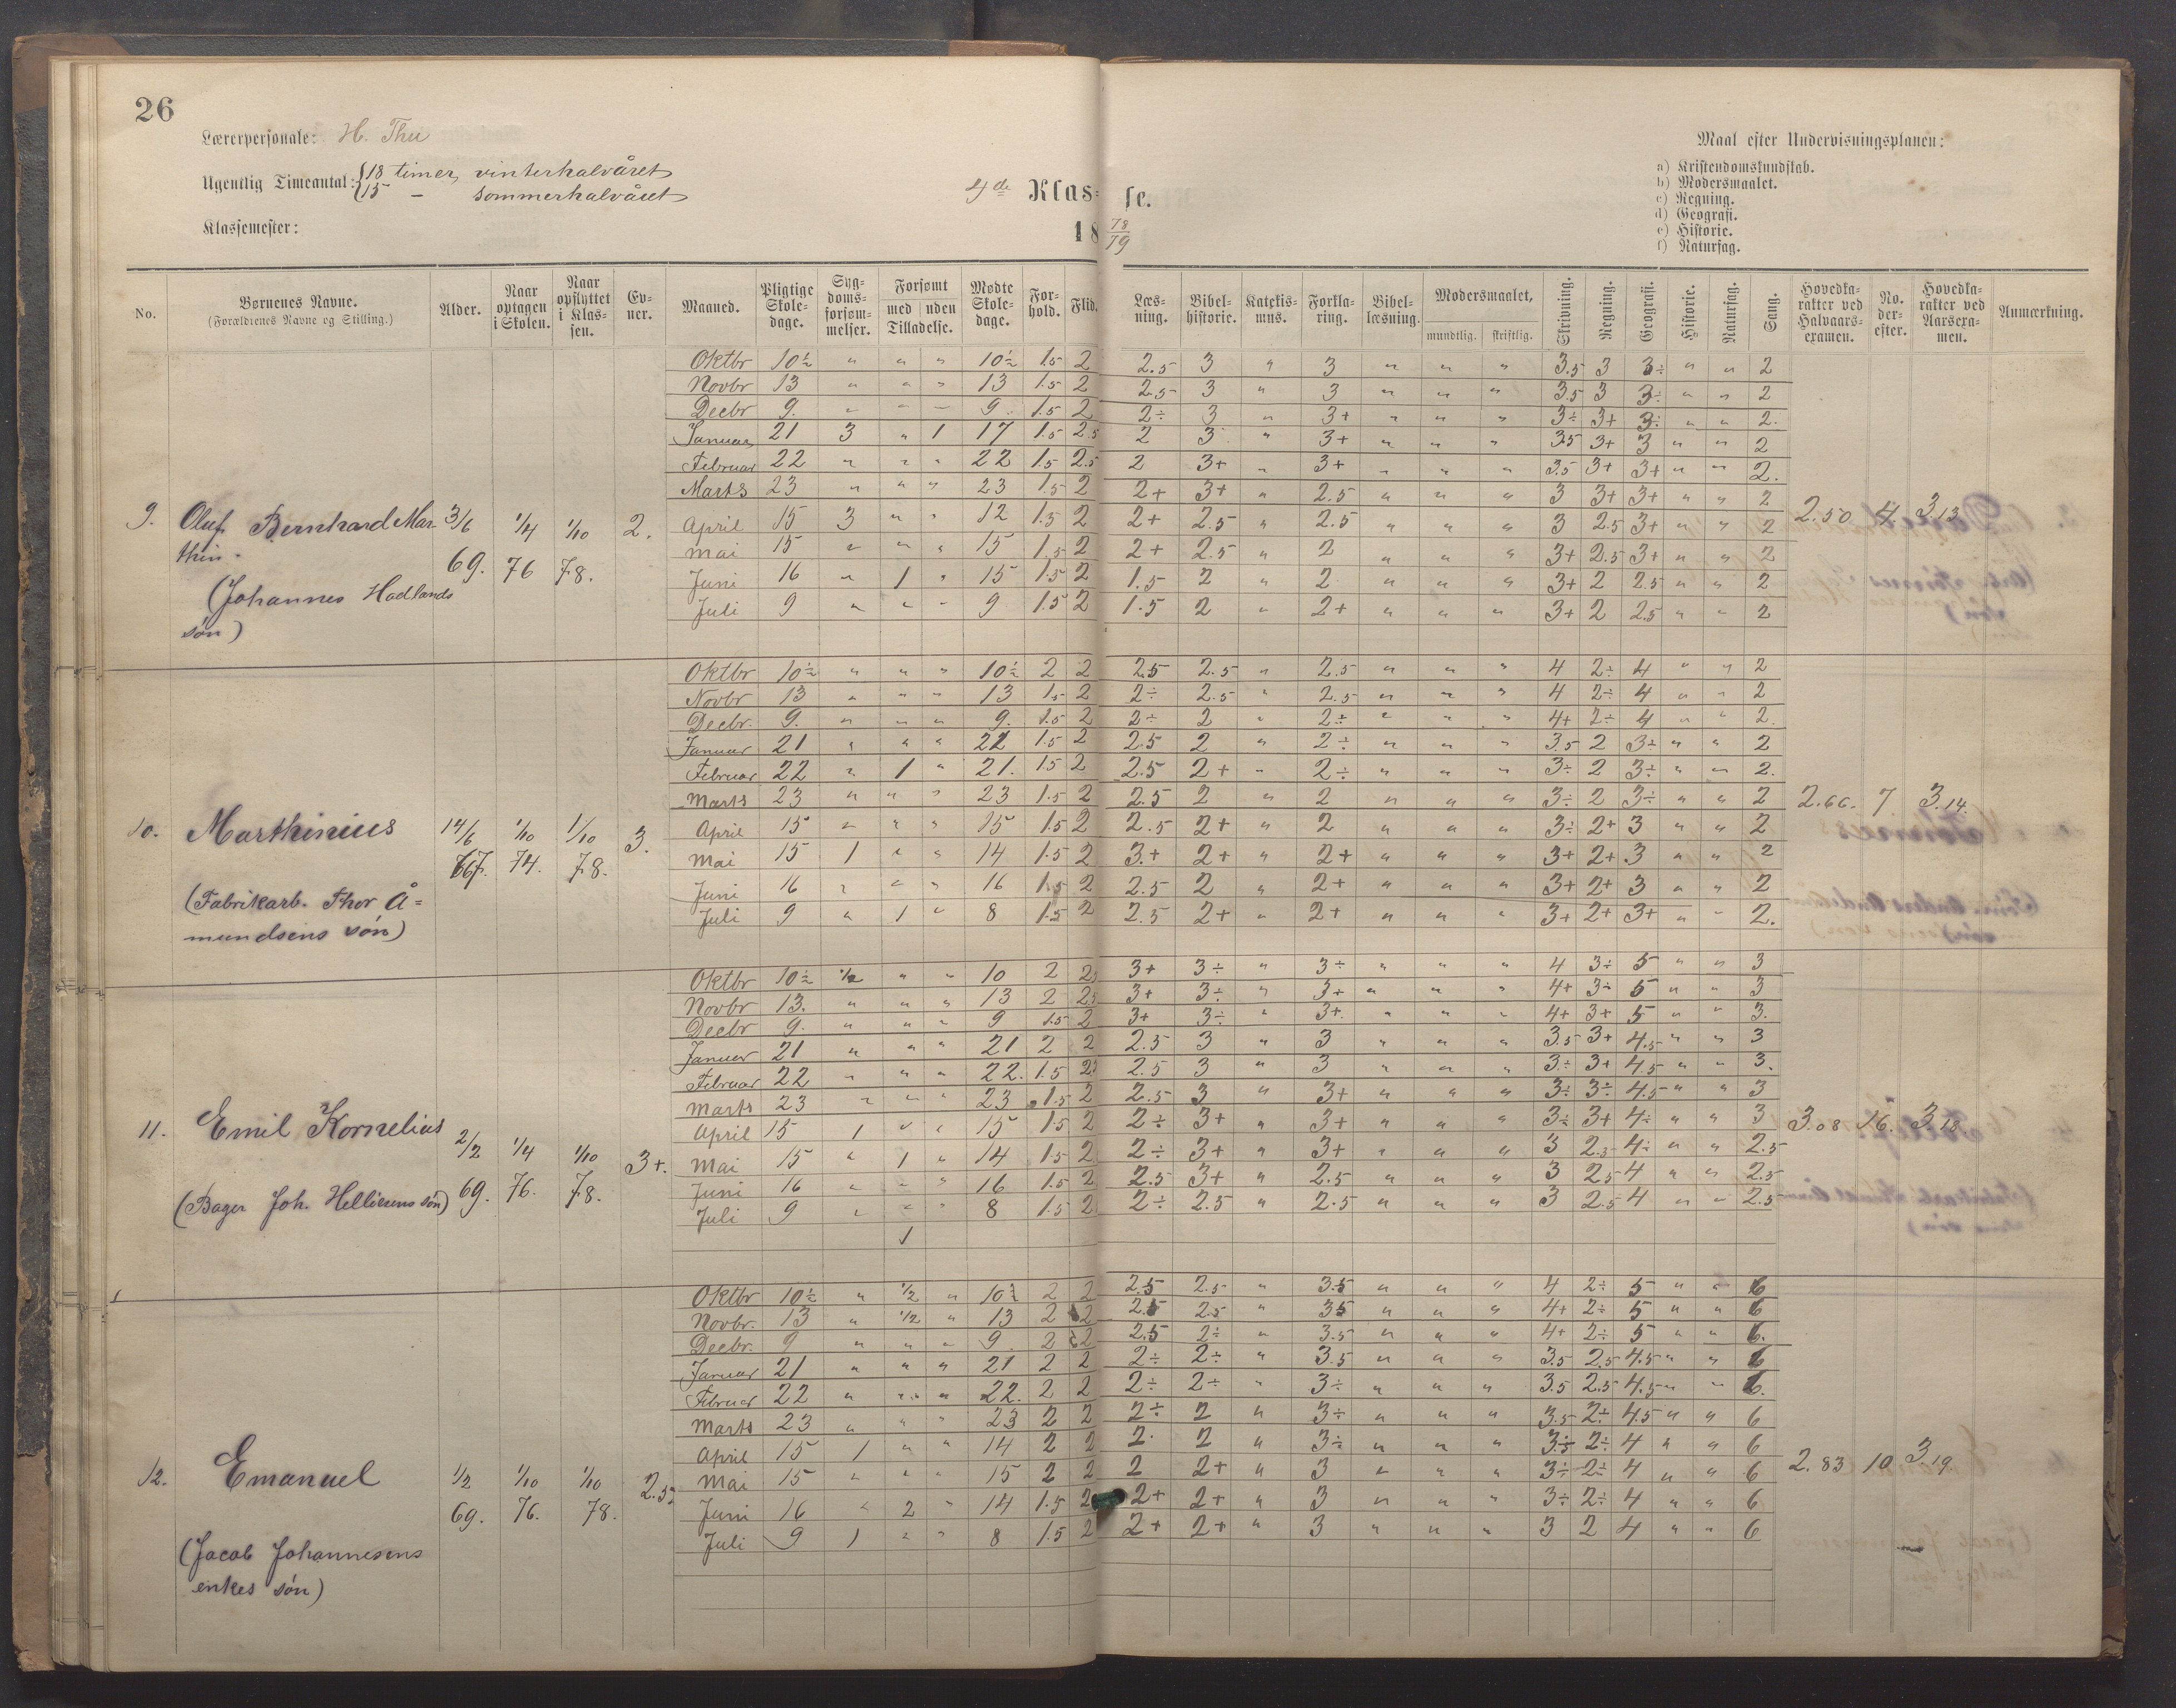 26
Lærerpersonale: H. Thu
Ugentlig Timeantal: {18 timer, vinterhalvåret
15 — sommerhalvåret
Klassemester:
4de Klas= se.
18 78/79
Maal efter Undervisningsplanen:
a) Kristendomskundskab.
b) Modersmaalet.
c) Regning.
d) Geografi.
e) Historie.
f) Naturfag.
No. Børnenes Navne. (Forældrenes Navne og Stilling.) Alder. Naar optagen i Skolen. Naar opflyttet i Klassen. Evner. Maaned. Pligtige Skoledage. Sygdomsforsømmelser. Forsømt med uden Tilladelse. Mødte Skoledage. Forhold. Flid. Læsning. Bibelhistorie. Katekismus. Forklaring. Bibellæsning. Modersmaalet, mundtlig. skriftlig. Skrivning. Regning. Geografi. Historie. Naturfag. Sang. Hovedkarakter ved Halvaarsexamen. No. derefter. Hovedkarakter ved Aarsexamen. Anmærkning.
9. Oluf Bernhard Marthin. (Johannes Hadlands søn) 3/6 69. 1/4 76 1/10 78. 2. 2.50 4. 3.13
Oktbr 10½ " " " 10½ 1.5 2 2.5 3 " 3 " " " 3.5 3 3÷ " " 2
Novbr 13 " " " 13 1.5 2 2.5 3 " 3 " " " 3.5 3 3÷ " " 2
Decbr 9. " " " 9. 1.5 2 2÷ 3 " 3+ " " " 3÷ 3+ 3÷ " " 2.
Januar 21 3 " 1 17 1.5 2.5 2 3 " 3+ " " " 3.5 3+ 3 " " 2
Februar 22 " " " 22 1.5 2.5 2 3+ " 3+ " " " 3.5 3+ 3+ " " 2.
Marts 23 " " " 23 1.5 2 2+ 3+ " 2.5 " " " 3 3+ 3+ " " 2
April 15 3 " " 12 1.5 2 2+ 2.5 " 2.5 " " " 3 2.5 3+ " " 2
Mai 15 " " " 15 1.5 2 2+ 2.5 " 2 " " " 3+ 2.5 3+ " " 2
Juni 16 " 1 " 15 1.5 2 1.5 2 " 2 " " " 3+ 2 2.5 " " 2
Juli 9 " " " 9 1.5 2 1.5 2 " 2+ " " " 3+ 2 2.5 " " 2
10. Marthinius (Fabrikarb. Thor Åmundsens søn) 14/6 67. 1/10 74. 1/10 78. 3. 2.66. 7. 3.14.
Oktbr 10½ " " " 10½ 2 2 2.5 2.5 " 2.5 " " " 4 2÷ 4 " " 2
Novbr 13 " " " 13 1.5 2 2÷ 2.5 " 2.5 " " " 4 2÷ 4 " " 2
Decbr. 9. " " " 9. 1.5 2 2÷ 2 " 2÷ " " " 4+ 2÷ 4 " " 2.
Januar 21 " " " 21 1.5 2 2.5 2 " 2÷ " " " 3.5 2 3÷ " " 2
Februar 22 " 1 " 21. 1.5 2 2.5 2+ " 2÷ " " " 3÷ 2 3÷ " " 2.
Marts 23 " " " 23 1.5 2 2.5 2 " 2 " " " 3÷ 2 3÷ " " 2
April 15 " " " 15 1.5 2 2.5 2+ " 2 " " " 3÷ 2+ 3 " " 2
Mai 15 1 " " 14 1.5 2 3.+ 2+ " 2+ " " " 3+ 2+ 3 " " 2
Juni 16 " " " 16 1.5 2 2.5 2 " 2+ " " " 3+ 2+ 3 " " 2
Juli 9 " 1 " 8 1.5 2 2.5 2+ " 2+ " " " 3+ 2+ 3+ " " 2.
11. Emil Kornelius (Bager Joh. Helliesens søn) 2/2 69. 1/4 76. 1/10 78. 3+. 3.08 16. 3.18
Oktbr 10½ 1/2 " " 10 2 2.5 3+ 3÷ " 3÷ " " " 4 3÷ 5 " " 3
Novbr 13. " " " 13 2 2.5 3+ 3÷ " 3+ " " " 4+ 3÷ 5 " " 3
Decbr 9. " " " 9 1.5 2 3+ 3÷ " 3+. " " " 4+ 3+ 5 " " 3.
Januar 21 " " " 21 2 2 2.5 3 " 3 " " " 3.5 3+ 4.5 " " 3
Februar 22 " " " 22. 1.5 2.5 2.5 3 " 3 " " " 3÷ 3+ 4.5 " " 3.
Marts 23 " " " 23 1.5 2 2.5 3 " 3+ " " " 3÷ 3÷ 4.5 " " 3
April 15 1 " " 15 1.5 2 2÷ 3+ " 3+ " " " 3÷ 3+ 4÷ " " 3
Mai 15 " 1 " 14 1.5 2 2÷ 3+ " 3+ " " " 3 2.5 4÷ " " 2.5
Juni 16 " " " 16 1.5 2 2.5 3+ " 2.5 " " " 3 2.5 4 " " 2.5
Juli 9 " " " 8 1.5 2 2÷ 2.5 " 2.5 " " " 3 2.5 4 " " 2.5
1
12. Emanuel (Jacob Johannesens enkes søn) 1/2 69. 1/10 76. 1/10 78. 2.5. 2.83 10 3.19.
Oktbr 10½ " 1/2 " 10½ 2 2 2.5 2.5 " 3.5 " " " 4 2÷ 5 " " 6
Novbr. 13 " 1/2 " 13 2 2 2.5 2.5 " 3.5 " " " 4+ 2÷ 5 " " 6
Decbr. 9 " " " 9. 2 2 2.5 2÷ " 3.5 " " " 4+ 2÷ 5 " " 6.
Januar 21 " " " 21 2 2 2÷ 2÷ " 3.5 " " " 3.5 2.5 4.5 " " 6
Februar 22 " " " 22. 2 2 2÷ 2÷ " 3÷ " " " 3.5 2.5 4.5 " " 6.
Marts 23 " " " 23 2 2 2÷ 2 " 3÷ " " " 3.5 2÷ 4.5 " " 6
April 15 1 " " 14 2 2 2. 2 " 3÷ " " " 3÷ 2÷ 4 " " 6
Mai 15 " " " 15 2 2 2 2+ " 3 " " " 3÷ 2÷ 4 " " 6
Juni 16 " 2 " 14 1.5 2 2+ 2+ " 3 " " " 3÷ 2÷ 4 " " 6
Juli 9 1 " " 8 1.5 2 2+ 2+ " 3 " " " 3 2 4 " " 6